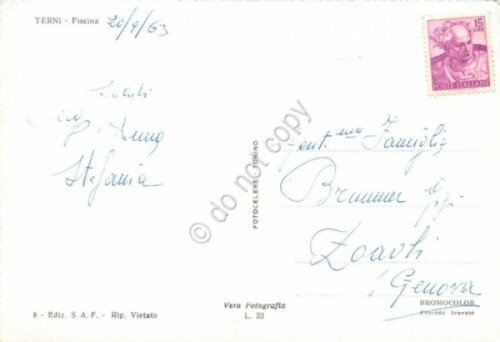 TERNI - Fiscina
20/9/63
15
LIRE
POSTE ITALIANE
Saluti
Anna
Stefania
Gent.ma Famiglia
Brunner
Zoagli
(Genova
FOTOCELERE TORINO
do not copy
8 - Ediz. S. A. F. - Rip. Vietata
Vera Fotografia
L. 35
BROMOCOLOR
Procedé breveté